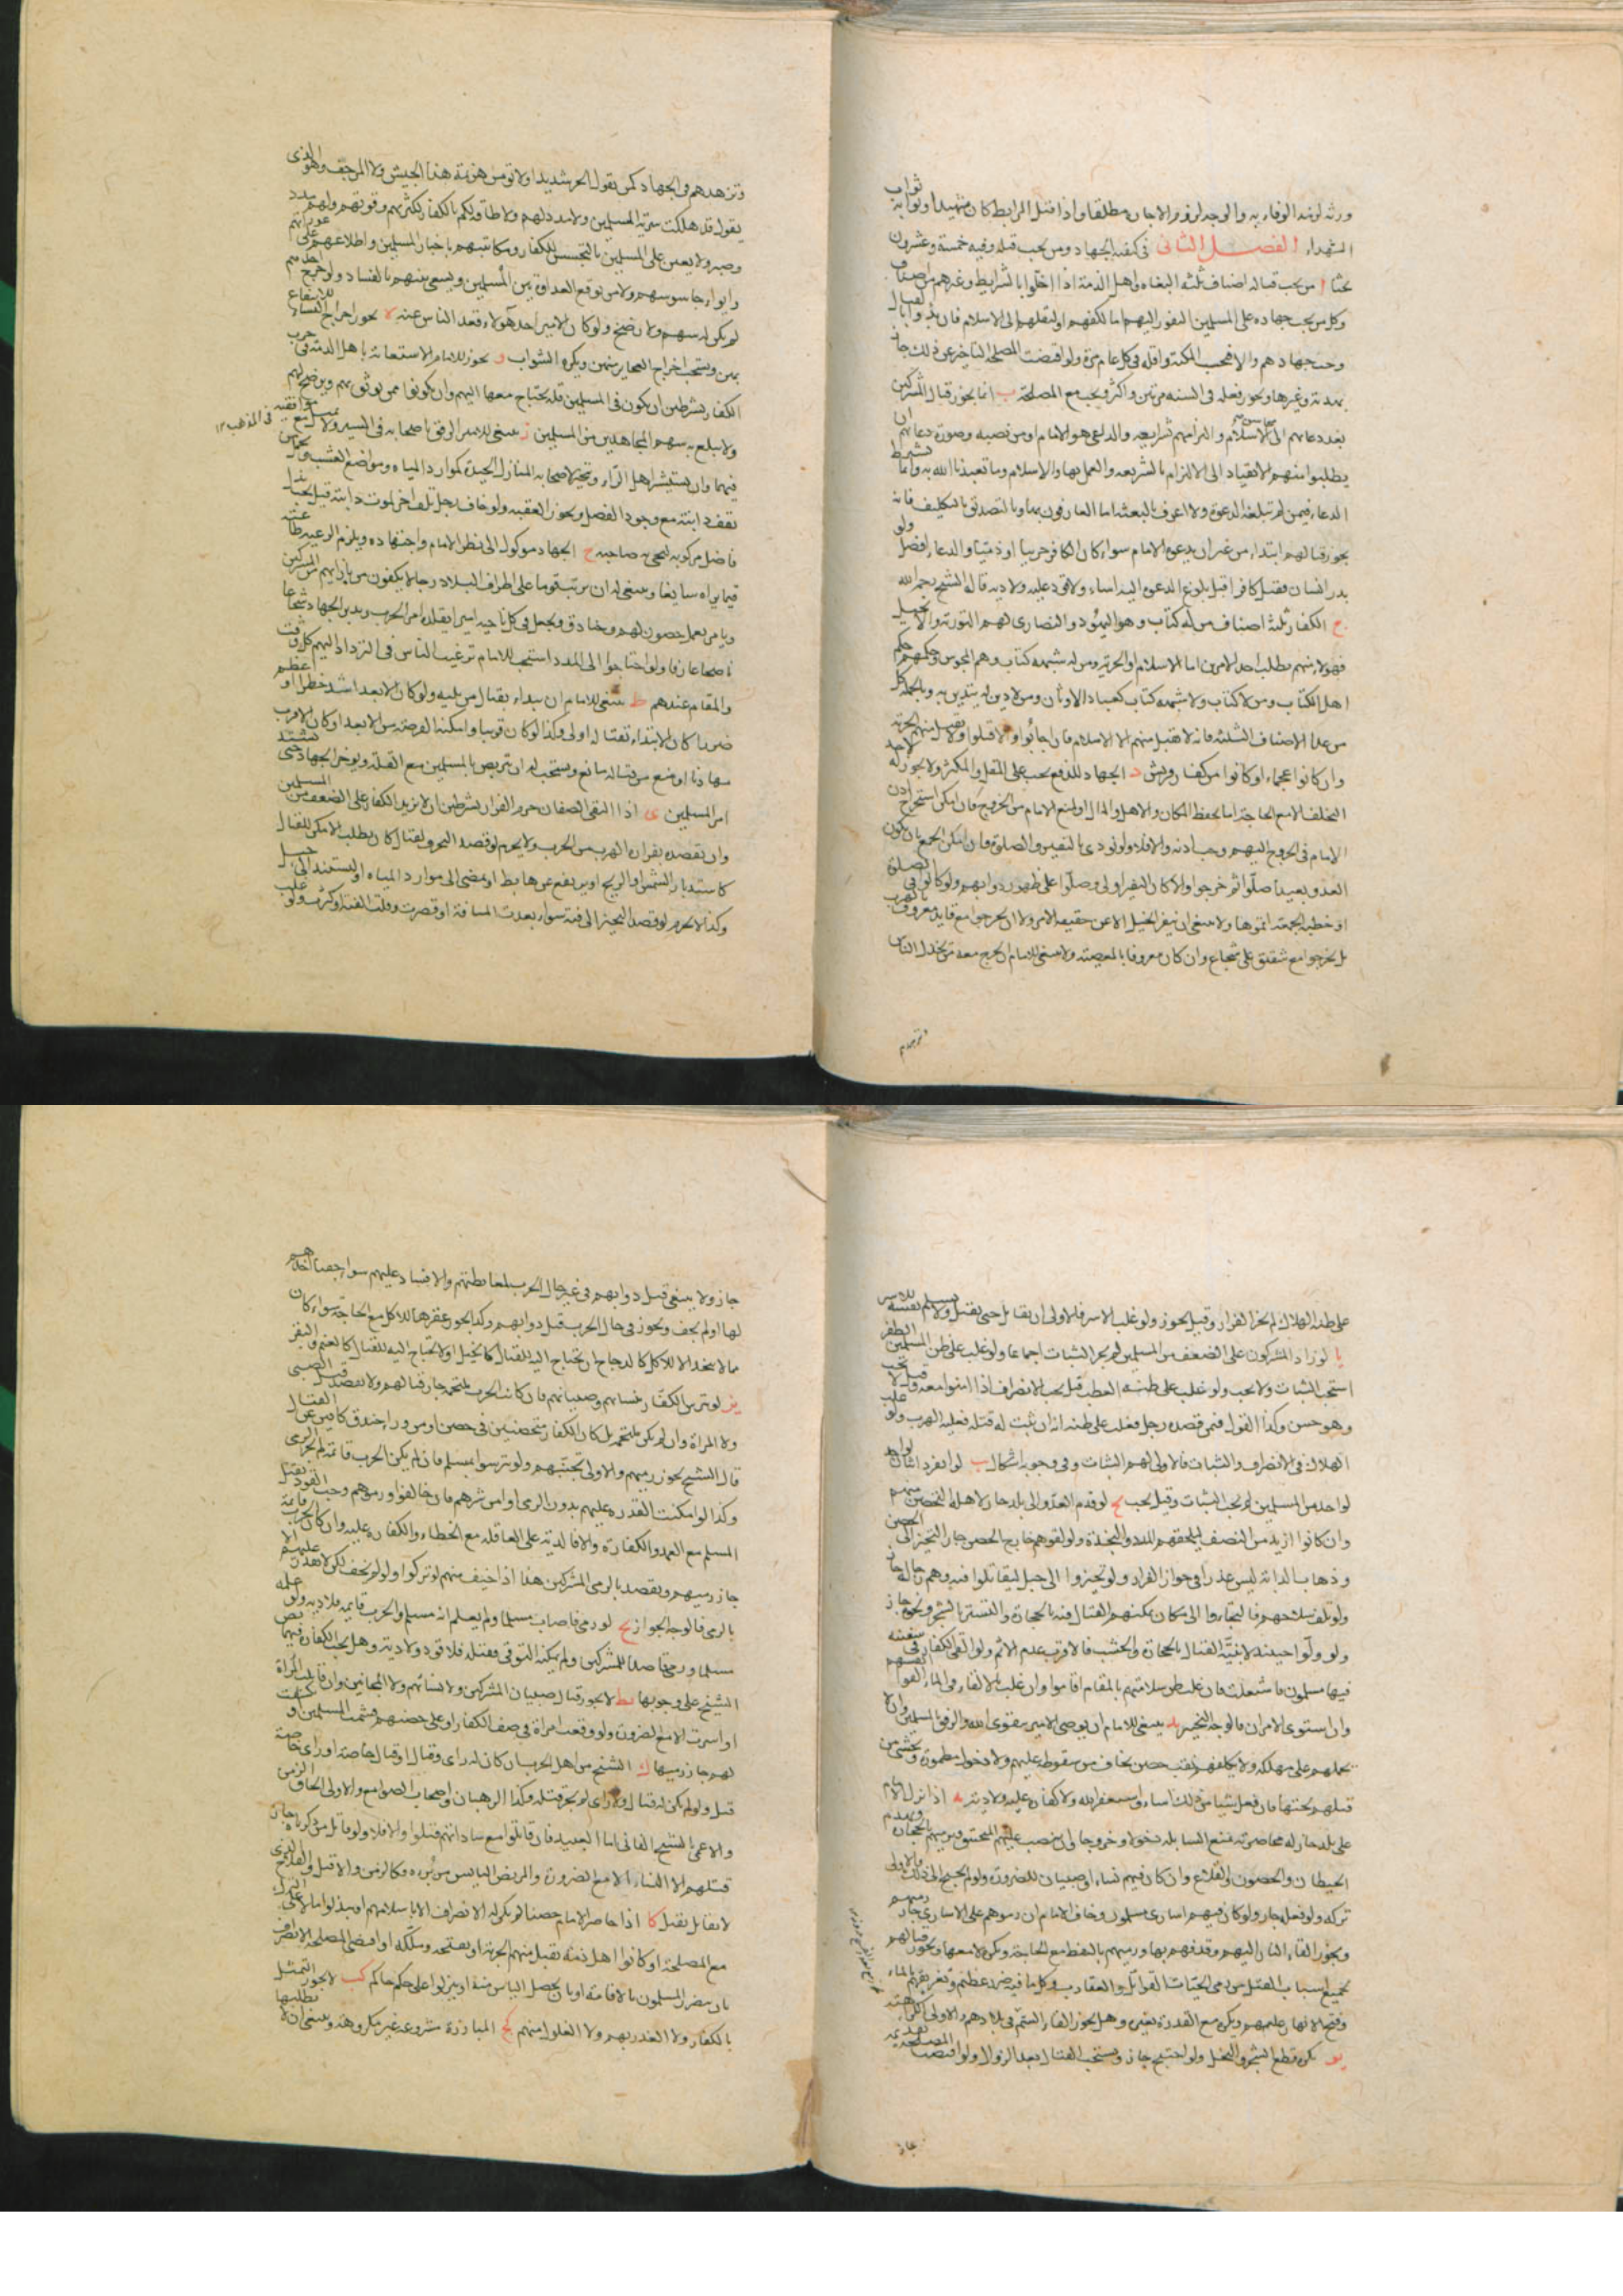 ورثه لزمه الوفاء به والوجه لزوم الاجارة مطلقا واذا قتل المرابط كان شهيدا وثوابه ثواب
الشهداء الفصل الثانى فى كيفية الجهاد ومن يجب قتله وفيه خمسة وعشرون
بحثا ا من يجب قتاله اصناف ثلثة البغاة واهل الذمة اذا اخلوا بالشرايط وغيرهم من اصناف الكفار
وكل من يجب جهاده على المسلمين النفور اليهم اما لكفهم او لنقلهم الى الاسلام فان بدأوا بالقتال
وجب جهادهم والا فبحسب المكنة واقله فى كل عام مرة ولو اقتضت المصلحة التاخير عن ذلك جاز
بهدنة وغيرها ويجوز فعله فى السنة مرتين واكثر ويجب مع المصلحة ب انما يجوز قتال المشركين
بعد دعائهم الى محاسن الاسلام والتزامهم شرايعه والداعى هو الامام او من نصبه وصورة دعائهم ان
يطلبوا منهم الانقياد الى الالتزام بالشريعة والعمل بها والاسلام وما تعبدنا الله به وانما يشترط
الدعاء فيمن لم تبلغه الدعوة ولا اعرف بالبعثة اما العارفون بها وبالتصديق بالتكليف فانه
يجوز قتالهم ابتداء من غير ان يدعوهم الامام سواء كان الكافر حربيا او ذميا والدعاء افضل ولو
بدر انسان فقتل كافرا قبل بلوغ الدعوة اليه اساء ولا قود عليه ولا دية قاله الشيخ رحمه الله
ج الكفار ثلثة اصناف من له كتاب وهو اليهود والنصارى لهم التورية والانجيل
فهولاء منهم يطلب احد الامرين اما الاسلام او الجزية ومن له شبهة كتاب وهم المجوس وحكمهم حكم
اهل الكتاب ومن لا كتاب ولا شبهة كتاب كعباد الاوثان ومن لا دين له يتدين به وبالجملة كل
من عدا الاصناف الثلثة فانه لا يقبل منهم الا الاسلام فان اجابوا والا قتلوا ولا يقبل منهم الجزية
وان كانوا عجماء او كانوا من كفار قريش د الجهاد للدفع يجب على المقل والمكثر ولا يجوز لاحد
التخلف الا مع الحاجة اما بحفظ المكان والاهل والمال او لمنع الامام من الخروج فان امكن استخراج اذن
الامام فى الخروج اليهم وجب اذنه والا فلا ولو نودى بالنفير والصلوة فان امكن الجمع بان يكون
العدو بعيدا صلوا ثم خرجوا والا كان النفير اولى وصلوا على ظهور دوابهم ولو كانوا فى الصلوة
او خطبة الجمعة اتموها ولا ينبغى ان ينفر الخيل الا عن حقيقة الامر ولا ان يخرجوا مع قايد معروف بالهرب
بل يخرجوا مع شفيق على شجاع وان كان معروفا بالمعصية ولا ينبغى للامام ان يخرج معه من يخذل الناس
وتزهدهم
وتزهدهم فى الجهاد كمن يقول الحر شديد او لا تؤمن هزيمة هذا الجيش ولا المرجف وهو الذى
يقول قد هلكت سرية المسلمين ولا مدد لهم ولا طاقة لكم بالكفار لكثرتهم وقوتهم ولهم مدد
وصبر ولا يعين على المسلمين بالتجسس للكفار ومكاتبتهم باخبار المسلمين واطلاعهم على عوراتهم
وايواء جاسوسهم ولا من يوقع العداوة بين المسلمين ويسعى بينهم بالفساد ولو خرج احدهم
لم يكن له سهم ولا رضخ ولو كان الامير احد هولاء قعد الناس عنه ه يجوز اخراج النساء للانتفاع
بهن ويستحب اخراج العجايز منهن ويكره الشواب و يجوز للامام الاستعانة باهل الذمة فى حرب
الكفار بشرطين ان يكون فى المسلمين قلة يحتاج معها اليهم وان يكونوا ممن يوثق بهم ويرضخ لهم
ولا يبلغ به سهم المجاهدين من المسلمين ز ينبغى للامير الرفق باصحابه فى السير ولا يميل مع موافقيه فى المذهب
فيهما وان يستشير اهل الراى ويتخير لاصحابه المنازل الجيدة كموارد المياه ومواضع العشب ويحمل من
نفقت دابته مع وجود الفضل ويجوز العقبة ولو خاف رجل تلف اخر لموت دابته قيل يجب بذل
فاضل مركوبه ليحيى به صاحبه ح الجهاد موكول الى نظر الامام واجتهاده ويلزم الرعية طاعته
فيما يراه سايغا وينبغى له ان يرتب قوما على اطراف البلاد رجالا يكفون من بازائهم من المشركين
ويامر بعمل حصون لهم وخنادق ويجعل فى كل ناحية اميرا يقلده امر الحرب وتدبير الجهاد شجاعا
ناصحا عارفا ولو احتاجوا الى المدد استحب للامام ترغيب الناس فى التردد اليهم كل وقت
والمقام عندهم ط ينبغى للامام ان يبداء بقتال من يليه ولو كان الابعد اشد خطرا او اعظم
ضررا كان الابتداء بقتاله اولى وكذا لو كان قريبا وامكنه الفرصة من الابعد او كان الاقرب
مهادنا او منع من قتاله مانع ويستحب له ان يتربص بالمسلمين مع القلة ويوخر الجهاد حتى يشتد
امر المسلمين ى اذا التقى الصفان حرم الفرار بشرطين ان لا يزيد الكفار على الضعف من المسلمين
وان يقصد بفراره الهرب من الحرب ولا يحرم لو قصد التحرف لقتال كان يطلب الامكن للقتال
كاستدبار الشمس او الريح او يرتفع عن هابط او يمضى الى موارد المياه او ليستند الى جبل
وكذا لا يحرم لو قصد التحيز الى فئة سواء بعدت المسافة او قصرت وقلت الفئة او كثرت ولو غلب
على ظنه الهلاك لم يجز الفرار وقيل يجوز ولو غلب الاسر فالاولى ان يقاتل حتى يقتل ولا يسلم نفسه للاسر
يا لو زاد المشركون على الضعف من المسلمين لم يجب الثبات اجماعا ولو غلب على ظن المسلمين الظفر
استحب الثبات ولا يجب ولو غلب على ظنه العطب قيل يجب الانصراف اذا امنوا معه وقيل لا يجب
وهو حسن وكذا القول فيمن قصده رجل فغلب على ظنه انه ان ثبت له قتله فعليه الهرب ولو غلب
الهلاك فى الانصراف والثبات فالاولى لهم الثبات وفى وجوبه اشكال يب لو انفرد اثنان بواحد
لواحد من المسلمين لم يجب الثبات وقيل يجب يج لو قدم العدو الى بلد جاز لاهله التحصن منهم
وان كانوا ازيد من النصف ليلحقهم المدد والنجدة ولو لقوهم خارج الحصن جاز التحيز الى الحصن
وذهاب الدابة ليس عذرا فى جواز الفرار ولو تحيزوا الى جبل ليقاتلوا فيه وهم رجاله جاز
ولو تلف سلاحهم فالتجاءوا الى مكان يمكنهم القتال فيه بالحجارة والتستر بالشجر ونحوه جاز
ولو ولوا حينئذ لا بنية القتال بالحجارة والخشب فالاقرب عدم الاثم ولو القى الكفار فى سفينة
فيها مسلمون فاشتعلت فان غلب ظن سلامتهم بالمقام اقاموا وان غلب بالالقاء فى الماء القوا نفسهم
وان استوى الامران فالوجه التخيير يد ينبغى للامام ان يوصى الامير بتقوى الله والرفق بالمسلمين وان لا
يحملهم على مهلكة ولا يكلفهم نقب حصن يخاف من سقوطه عليهم ولا دخول مطمورة يخشى من
قتلهم تحتها فان فعل شيا من ذلك اساء واستغفر الله ولا كفارة عليه ولا دية يه اذا نزل الامام
على بلد جاز له محاصرته بمنع السابلة دخولا وخروجا وان ينصب عليهم المنجنيق ويرميهم بالحجارة ويهدم
الحيطان والحصون والقلاع وان كان فيهم نساء او صبيان للضرورة ولو لم يحتج الى ذلك فالاولى
تركه ولو فعله جاز ولو كان فيهم اسارى مسلمون وخاف الامام ان رموهم على الاسارى جاز رميهم
ويجوز القاء النار اليهم وقذفهم بها ورميهم بالنفط مع الحاجة ويكره لا معها ويجوز قتالهم
بجميع اسباب القتل من رمى الحيات القواتل والعقارب وكل ما فيه ضرر عظيم وتغريقهم بالماء
وفتح الانهار عليهم ويكره مع القدرة بغيره وهل يجوز القاء السم فى بلادهم والاولى الكراهة
يو يكره قطع الشجر والنخل ولو احتيج جاز ويستحب القتال بعد الزوال ولو اقتضت المصلحة تقديمه
جاز
جاز ولا ينبغى قتل دوابهم فى غير حال الحرب لمغايظتهم والافساد عليهم سواء خفنا اخذهم
لها او لم نخف ويجوز فى حال الحرب قتل دوابهم وكذا يجوز عقرها للاكل مع الحاجة سواء كان
مما لا يتخذ الا للاكل كالدجاج او يحتاج اليه للقتال كالخيل او لا يحتاج اليه للقتال كالغنم والبقر
يز لو تترس الكفار بنسائهم وصبيانهم فان كانت الحرب ملتحمة جاز قتالهم ولا يقصد قتل الصبى
ولا المراة وان لم يكن ملتحمة بل كان الكفار متحصنين فى حصن او من وراء خندق كافين عن القتال
قال الشيخ يجوز رميهم والاولى تجنبهم ولو تترسوا بمسلم فان لم يكن الحرب قائمة لم يجز الرمى
وكذا لو امكنت القدرة عليهم بدون الرمى او امن شرهم فان خالفوا ورموهم وجب القود بقتل
المسلم مع العمد والكفارة والا فالدية على العاقلة مع الخطاء والكفارة عليه وان كان الحرب قائمة
جاز رميهم ويقصد بالرمى المشركين هذا اذا خيف منهم لو تركوا ولو لم يخف لكن لا يقدر عليهم الا
بالرمى فالوجه الجواز يح لو رمى فاصاب مسلما ولم يعلم انه مسلم والحرب قايمة فلا دية ولو علمه
مسلما ورمى قاصدا للمشركين ولم يمكنه التوقى فقتله فلا قود ولا دية وهل يجب الكفارة فيهما نص
الشيخ على وجوبها يط لا يجوز قتل صبيان المشركين ولا نسائهم ولا المجانين وان قاتلت المراة
او اسرت الا مع الضرورة ولو وقعت امراة فى صف الكفار او على حصنهم فشتمت المسلمين او تكشفت
لهم جاز رميها ك الشيخ من اهل الحرب ان كان له راى وقتال او قتال خاصة او راى خاصة
قتل ولو لم يكن له قتال ولا راى لم يجز قتله وكذا الرهبان واصحاب الصوامع والاولى الحاق الزمن
والاعمى بالشيخ الفانى اما العبيد فان قاتلوا مع ساداتهم قتلوا والا فلا ولو قاتل من ذكرناه جاز
قتلهم الا النساء الا مع الضرورة والمريض اليايس من برءه فكالزمن والا قتل والفلاح الذى
لا يقاتل يقتل كا اذا حاصر الامام حصنا لم يكن له الانصراف الا باسلامهم او يبذلوا مالا على الترك
مع المصلحة او كانوا اهل ذمة يقبل منهم الجزية او يفتحه ويملكه او اقتضى المصلحة الانصراف
بان يتضرر المسلمون بالاقامة او بان يحصل الياس منه او ينزلوا على حكم حاكم كب لا يجوز التمثيل
بالكفار ولا الغدر بهم ولا الغلول منهم كج المبارزة مشروعة غير مكروهة وينبغى ان لا يطلبها